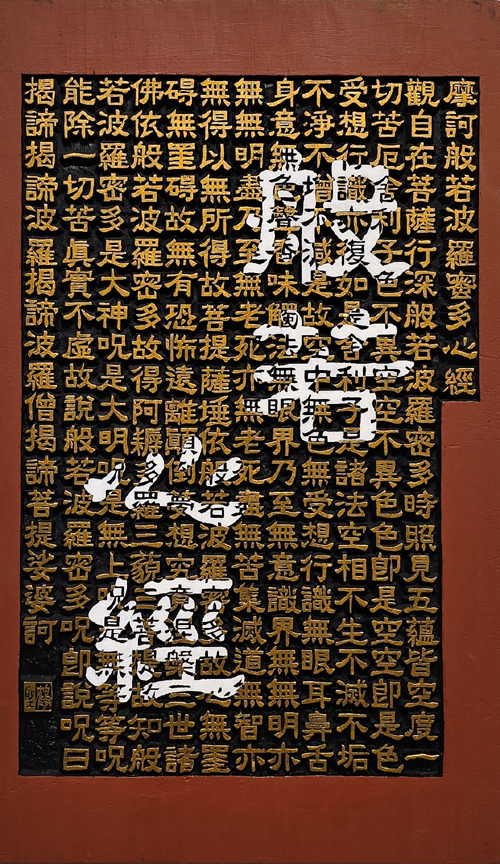 摩訶般若波羅蜜多心經
觀自在菩薩行深般若波羅密多時照見五蘊皆空度一
切苦厄舍利子色不異空空不異色色卽是空空卽是色
受想行識亦復如是舍利子是諸法空相不生不滅不垢
不淨不增不減是故空中無色無受想行識無眼耳鼻舌
身意無色聲香味觸法無眼界乃至無意識界無無明亦
無無明盡乃至無老死亦無老死盡無苦集滅道無智亦
無得以無所得故菩提薩埵依般若波羅密多故心無罣
碍無罣碍故無有恐怖遠離顛倒夢想究竟涅槃三世諸
佛依般若波羅密多故得阿耨多羅三藐三菩提故知般
若波羅密多是大神呪是大明呪是無上呪是無等等呪
能除一切苦眞實不虛故說般若波羅密多呪卽說呪曰
揭諦揭諦波羅揭諦波羅僧揭諦菩提娑婆訶
般若
心經